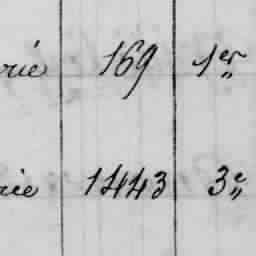 rie 169 1er
rie 1443 3e